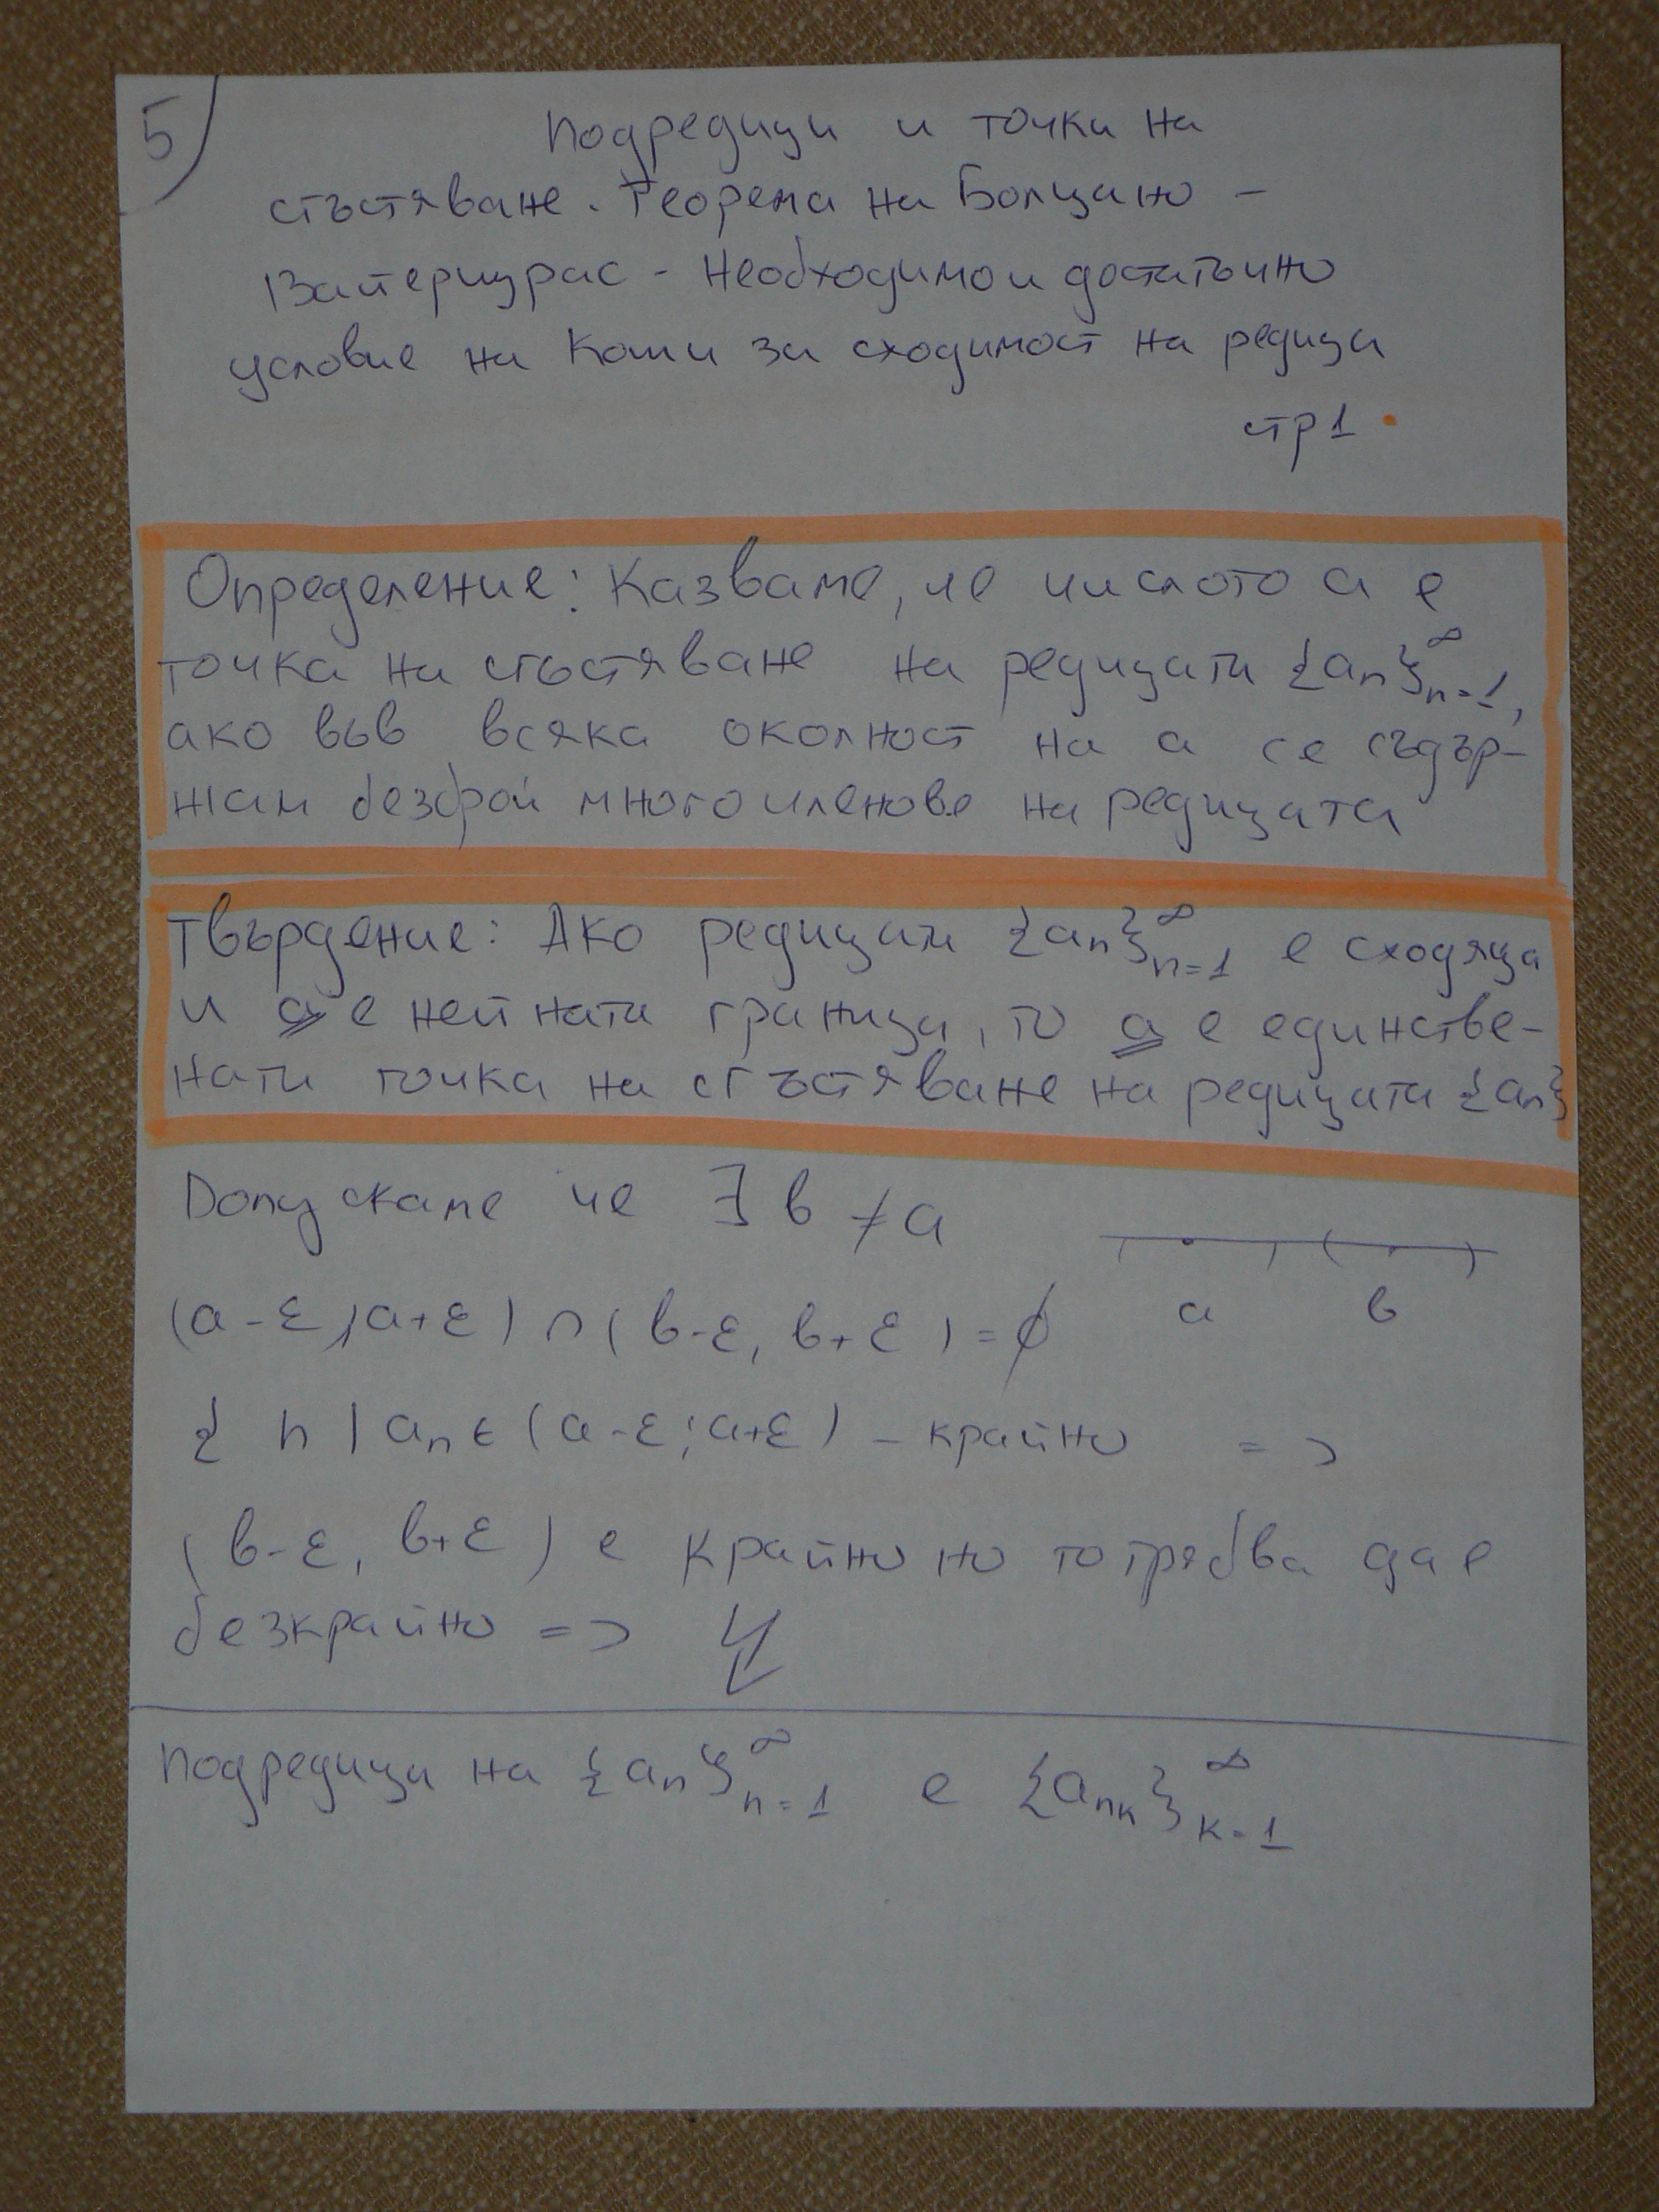 5)
Подредици и точки на
сгъстяване. Теорема на Болцано -
Вайерщрас - Необходимо и достатъчно
условие на Коши за сходимост на редици
стр 1
Определение: Казваме, че числото a е
точка на сгъстяване на редицата {aₙ}ₙ₌₁^∞,
ако във всяка околност на a се съдър-
жат безброй много членове на редицата
Твърдение: Ако редицата {aₙ}ₙ₌₁^∞ е сходяща
и a е нейната граница, то a е единстве-
ната точка на сгъстяване на редицата {aₙ}
Допускаме че ∃ b ≠ a
a b
(a-ε, a+ε) ∩ (b-ε, b+ε) = ∅
{ n | aₙ ∈ (a-ε; a+ε) - крайно =>
(b-ε, b+ε) е крайно но то трябва да е
безкрайно =>
Подредица на {aₙ}ₙ₌₁^∞ е {aₙₖ}ₖ₌₁^∞